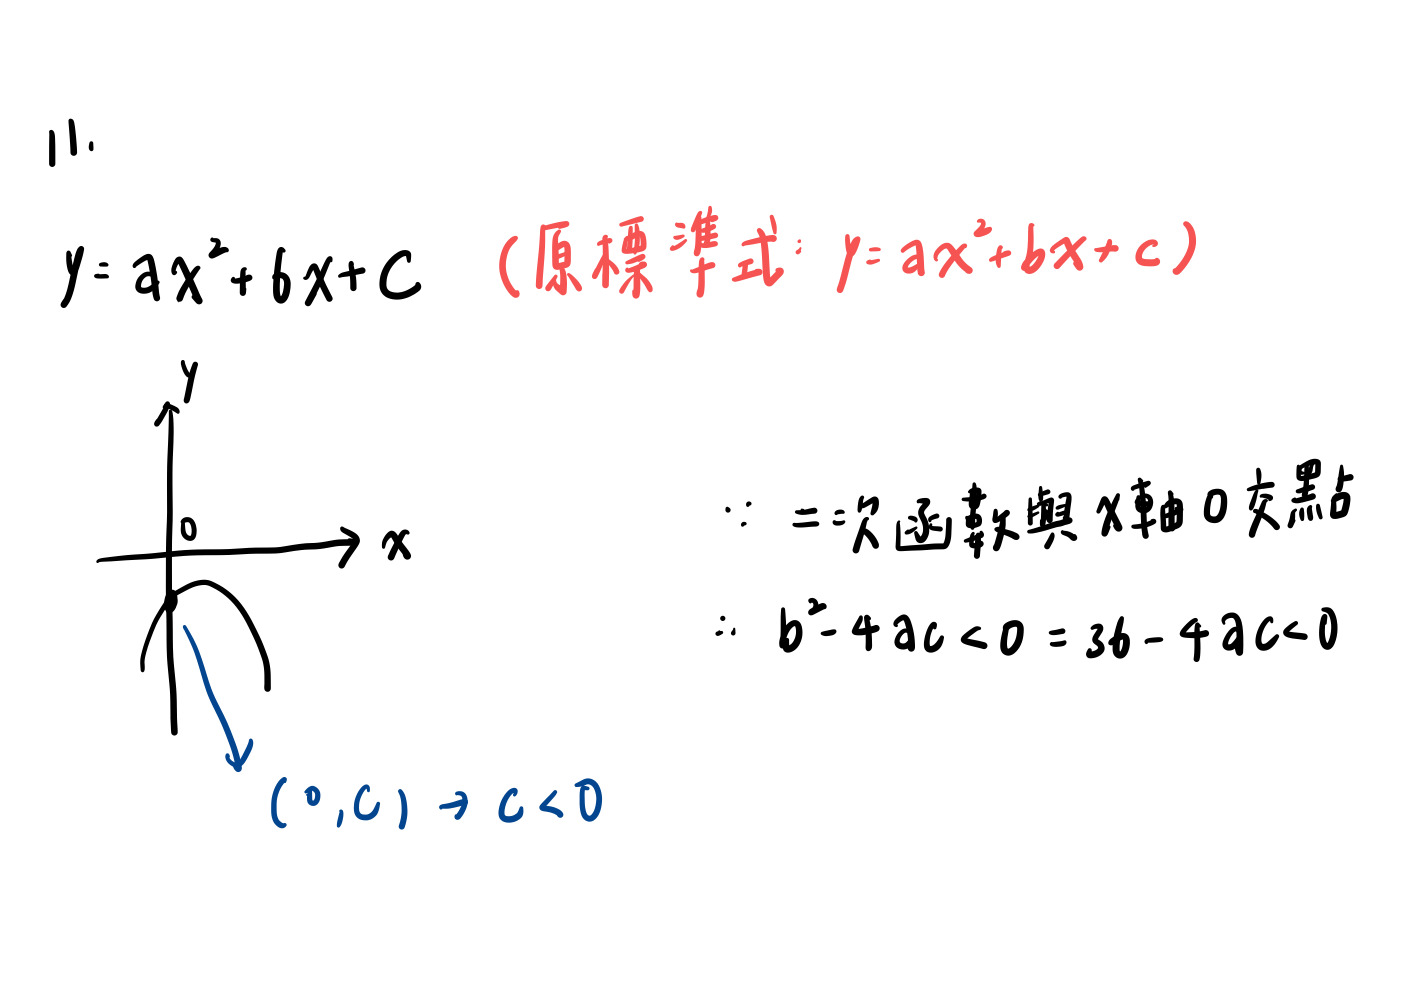 11.
y=ax²+6x+c (原標準式: y=ax²+bx+c)
y
0
x
∵ 二次函數與x軸0交點
∴ b²-4ac<0 = 36-4ac<0
(0,c) → c<0